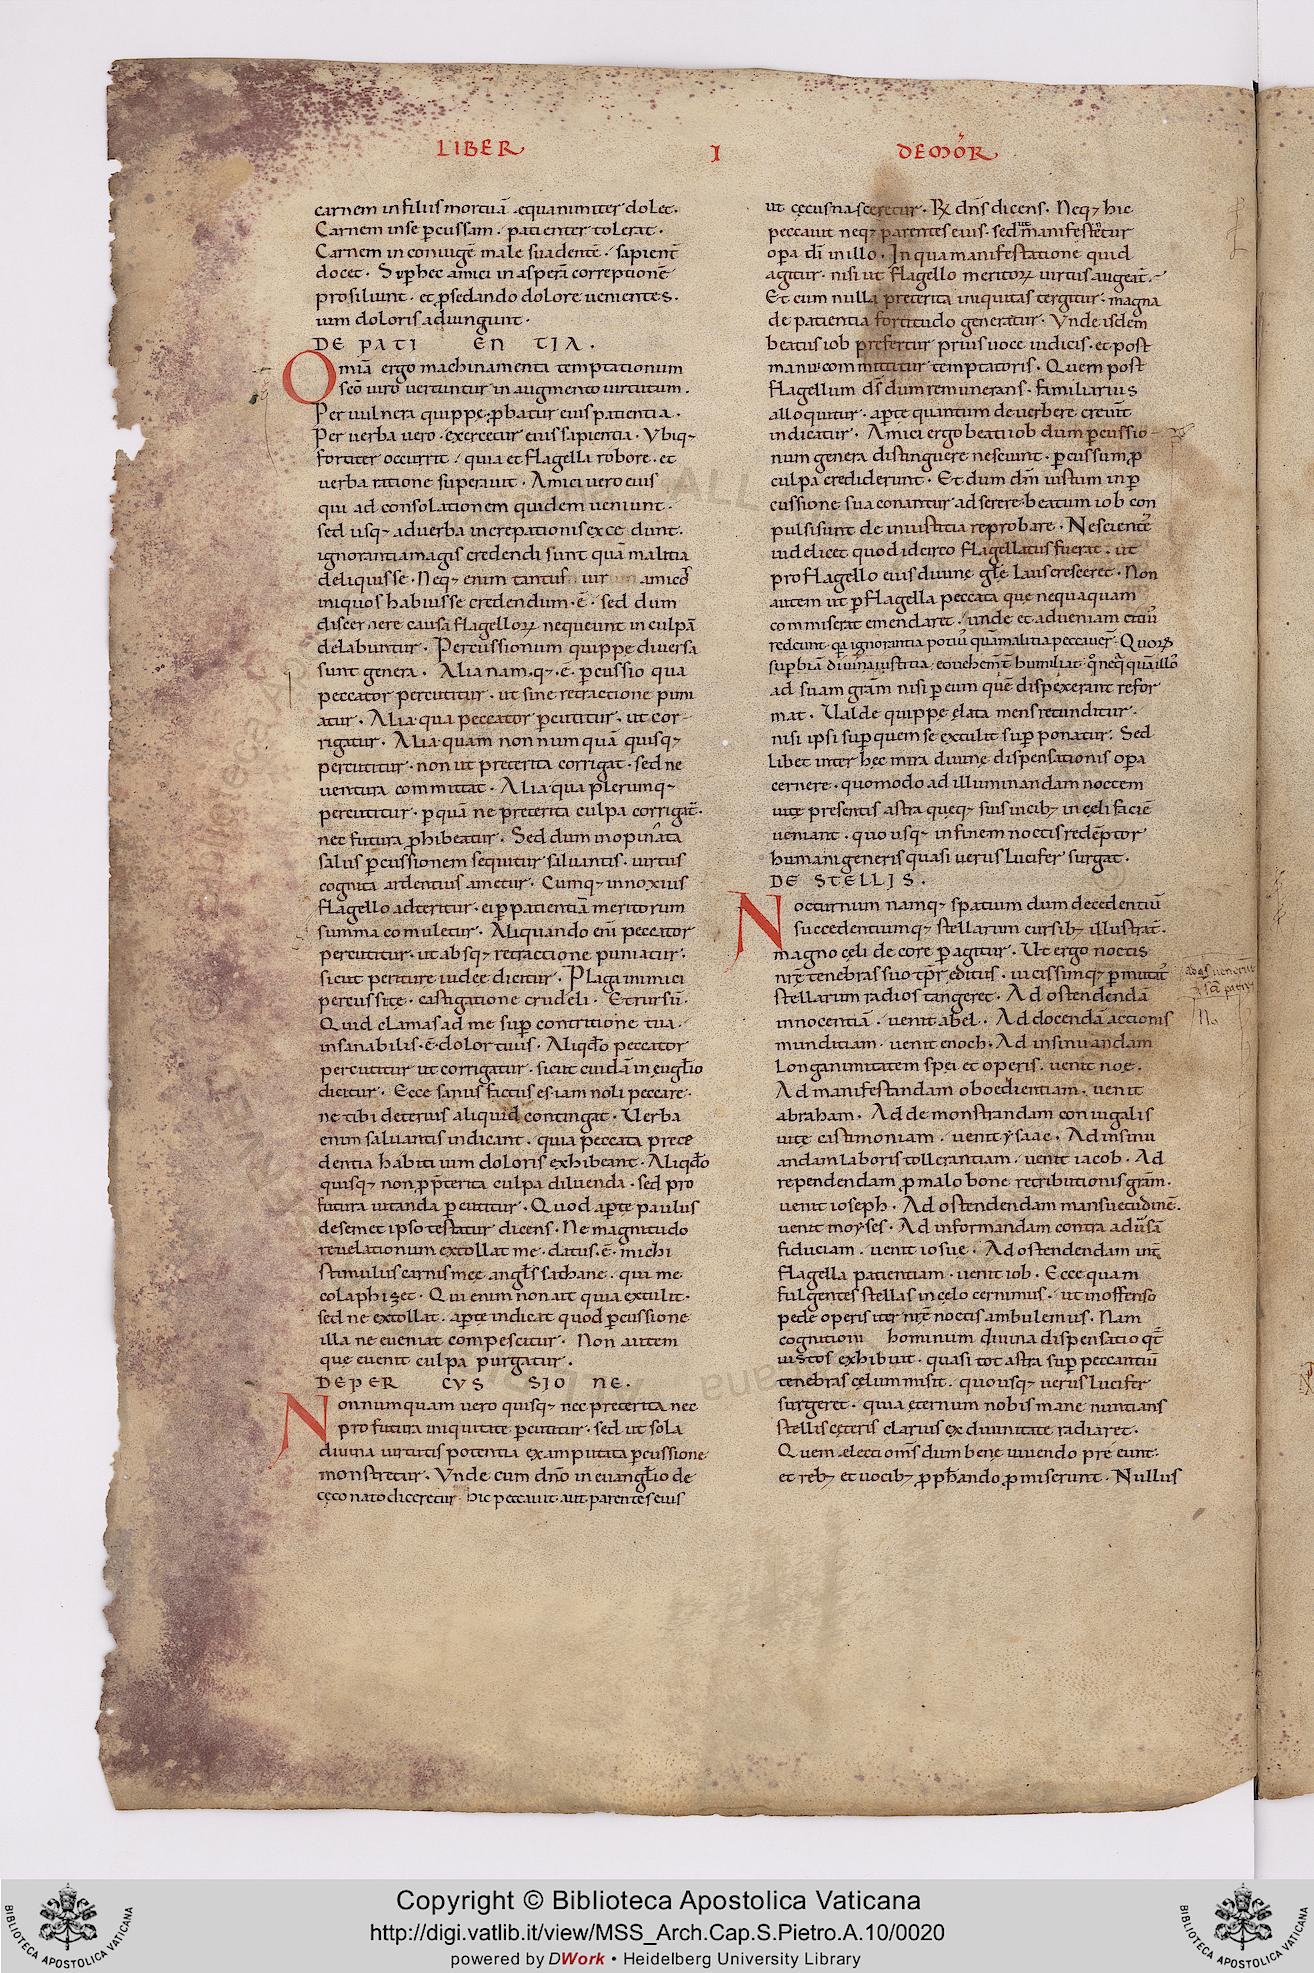 LIBER I DE MOR̄
carnem in filiis mortuā equanimiter dolet.
Carnem in se p̄cussam. patienter tolerat.
Carnem in coniugē male suadentē. sapient̄
docet. Sup̄ hec amici in asperā correptionē
prosiliunt. et p̄ sedando dolore uenientes.
uim doloris adiungunt.
DE PATI EN TIA.
Omīa ergo machinamenta temptationum
sc̄o uiro uertuntur in augmento uirtutum.
Per uulnera quippe p̄batur eius patientia.
Per uerba uero exercetur eius sapientia. Vbiq;
fortiter occurrit. quia et flagella robore. et
uerba ratione superauit. Amici uero eius
qui ad consolationem quidem ueniunt.
sed usq; ad uerba increpationis excedunt.
ignorantia magis credendi sunt quā malitia
deliquisse. Neq; enim tantus uir amicos
iniquos habuisse credendum ē. sed dum
discernere causā flagelloꝝ nequeunt in culpā
delabuntur. Percussionum quippe diuersa
sunt genera. Alia namq; ē p̄cussio qua
peccator percutitur. ut sine retractione puni
atur. Alia qua peccator p̄cutitur. ut cor
rigatur. Alia quam non numquā quisq;
percutitur. non ut preterita corrigat. sed ne
uentura committat. Alia qua plerumq;
percutitur. p̄ quā ne preterita culpa corrigat̄.
nec futura p̄hibeatur. Sed dum inopinata
salus p̄cussionem sequitur saluantis uirtus
cognita ardentius ametur. Cumq; innoxius
flagello adteritur. ei p̄ patientiā meritorum
summa comuletur. Aliquando eni peccator
percutitur. ut absq; retractione puniatur.
sicut periture iudee dicitur. Plaga inimici
percussi te. castigatione crudeli. Et rursū.
Quid clamas ad me sup̄ contritione tua.
insanabilis ē dolor tuus. Aliqdo peccator
percutitur ut corrigatur. sicut cuidā in euglīo
dicitur. Ecce sanus factus es. iam noli peccare.
ne tibi deterius aliquid contingat. Uerba
enim saluantis indicant. quia peccata prece
dentia habiti uim doloris exhibeant. Aliqdo
quisq; non p̄ p̄terita culpa diluenda. sed pro
futura uitanda p̄cutitur. Quod ap̄te paulus
desemet ipso testatur dicens. Ne magnitudo
reuelationum extollat me. datus ē michi
stimulus carnis mee angl̄s sathane. qui me
colaphizet. Qui enim non ait quia extulit.
sed ne extollat. ap̄te indicat quod p̄cussione
illa ne eueniat compescitur. Non autem
que euenit culpa purgatur.
DE PER CVS SIO NE.
Nonnumquam uero quisq; nec preterita nec
pro futura iniquitate p̄cutitur. sed ut sola
diuina uirtutis potentia ex amputata p̄cussione
monstretur. Vnde cum dn̄o in euangl̄io de
cęco nato diceretur. hic peccauit. aut parentes eius
ut cęcus nasceretur. R̄ dn̄s dicens. Neq; hic
peccauit neq; parentes eius. sed ut manifestetur
op̄a dī in illo. In qua manifestatione quid
agitur. nisi ut flagello meritoꝝ uirtus augeat̄.
Et cum nulla preterita iniquitas tergitur. magna
de patientia fortitudo generatur. Vnde isdem
beatus iob prefertur prius uoce iudicis. et post
manu committitur temptatoris. Quem post
flagellum ds̄ dum remunerans. familiarius
alloquitur. ap̄te quantum de uerbere creuit
indicatur. Amici ergo beati iob dum p̄cussio
num genera distinguere nesciunt. p̄cussum p̄
culpa crediderunt. Et dum dn̄m iustum in p̄
cussione sua conantur adserere. beatum iob con
pulsi sunt de iniustitia reprobare. Nescientes
uidelicet quod idcirco flagellatus fuerat. ut
pro flagello eius diuine gl̄e laus cresceret. Non
autem ut p̄ flagella peccata que nequaquam
commiserat emendaret. unde et ad ueniam citiū
redeunt. qa ignorantia potiū quā malitia peccauer̄. Quoꝝ
sup̄biā diuina iustitia eo uehemt̄ humiliat. q̄ neq̄quā illo
ad suam grām nisi p̄ eum quē dispexerant refor
mat. Ualde quippe elata mens retunditur.
nisi ipsi sup̄ quem se extulit sup̄ponatur. Sed
libet inter hec mira diuine dispensationis op̄a
cernere. quomodo ad illuminandam noctem
uitę presentis astra queq; suis uicib; in celi faciē
ueniant. quo usq; in finem noctis redēptor
humani generis quasi uerus lucifer surgat.
DE STELLIS.
Nocturnum namq; spatium dum decedentiū
succedentiumq; stellarum cursib; illustrat̄.
magno celi decore p̄agitur. Ut ergo noctis
nr̄e tenebras suo tp̄r editus. uicissimq; p̄mutat̄
stellarum radios tangeret. Ad ostendendā
innocentiā. uenit abel. Ad docendā actionis
munditiam. uenit enoch. Ad insinuandam
longanimitatem spei et operis. uenit noe.
Ad manifestandam oboedientiam. uenit
abraham. Ad demonstrandam coniugalis
uitę castimoniam. uenit ysaac. Ad insinu
andam laboris tollerantiam. uenit iacob. Ad
rependendam p̄ malo bone retributionis grām.
uenit ioseph. Ad ostendendam mansuetudinē.
uenit moyses. Ad informandam contra aduersā
fiduciam. uenit iosue. Ad ostendendam int̄
flagella patientiam. uenit iob. Ecce quam
fulgentes stellas in cęlo cernimus. ut inoffenso
pede operis iter nr̄e noctis ambulemus. Nam
cognitioni hominum diuina dispensatio qt̄
iustos exhibuit. quasi tot astra sup̄ peccantiū
tenebras cęlum misit. quousq; uerus lucifer
surgeret. quia ęternum nobis mane nuntians
stellis ceteris clarius ex diuinitate radiaret.
Quem electi om̄s dum bene uiuendo preeunt.
et reb; et uocib; p̄p̄hando p̄miserunt. Nullus
Copyright © Biblioteca Apostolica Vaticana
http://digi.vatlib.it/view/MSS_Arch.Cap.S.Pietro.A.10/0020
powered by DWork • Heidelberg University Library
BIBLIOTECA APOSTOLICA VATICANA
BIBLIOTECA APOSTOLICA VATICANA